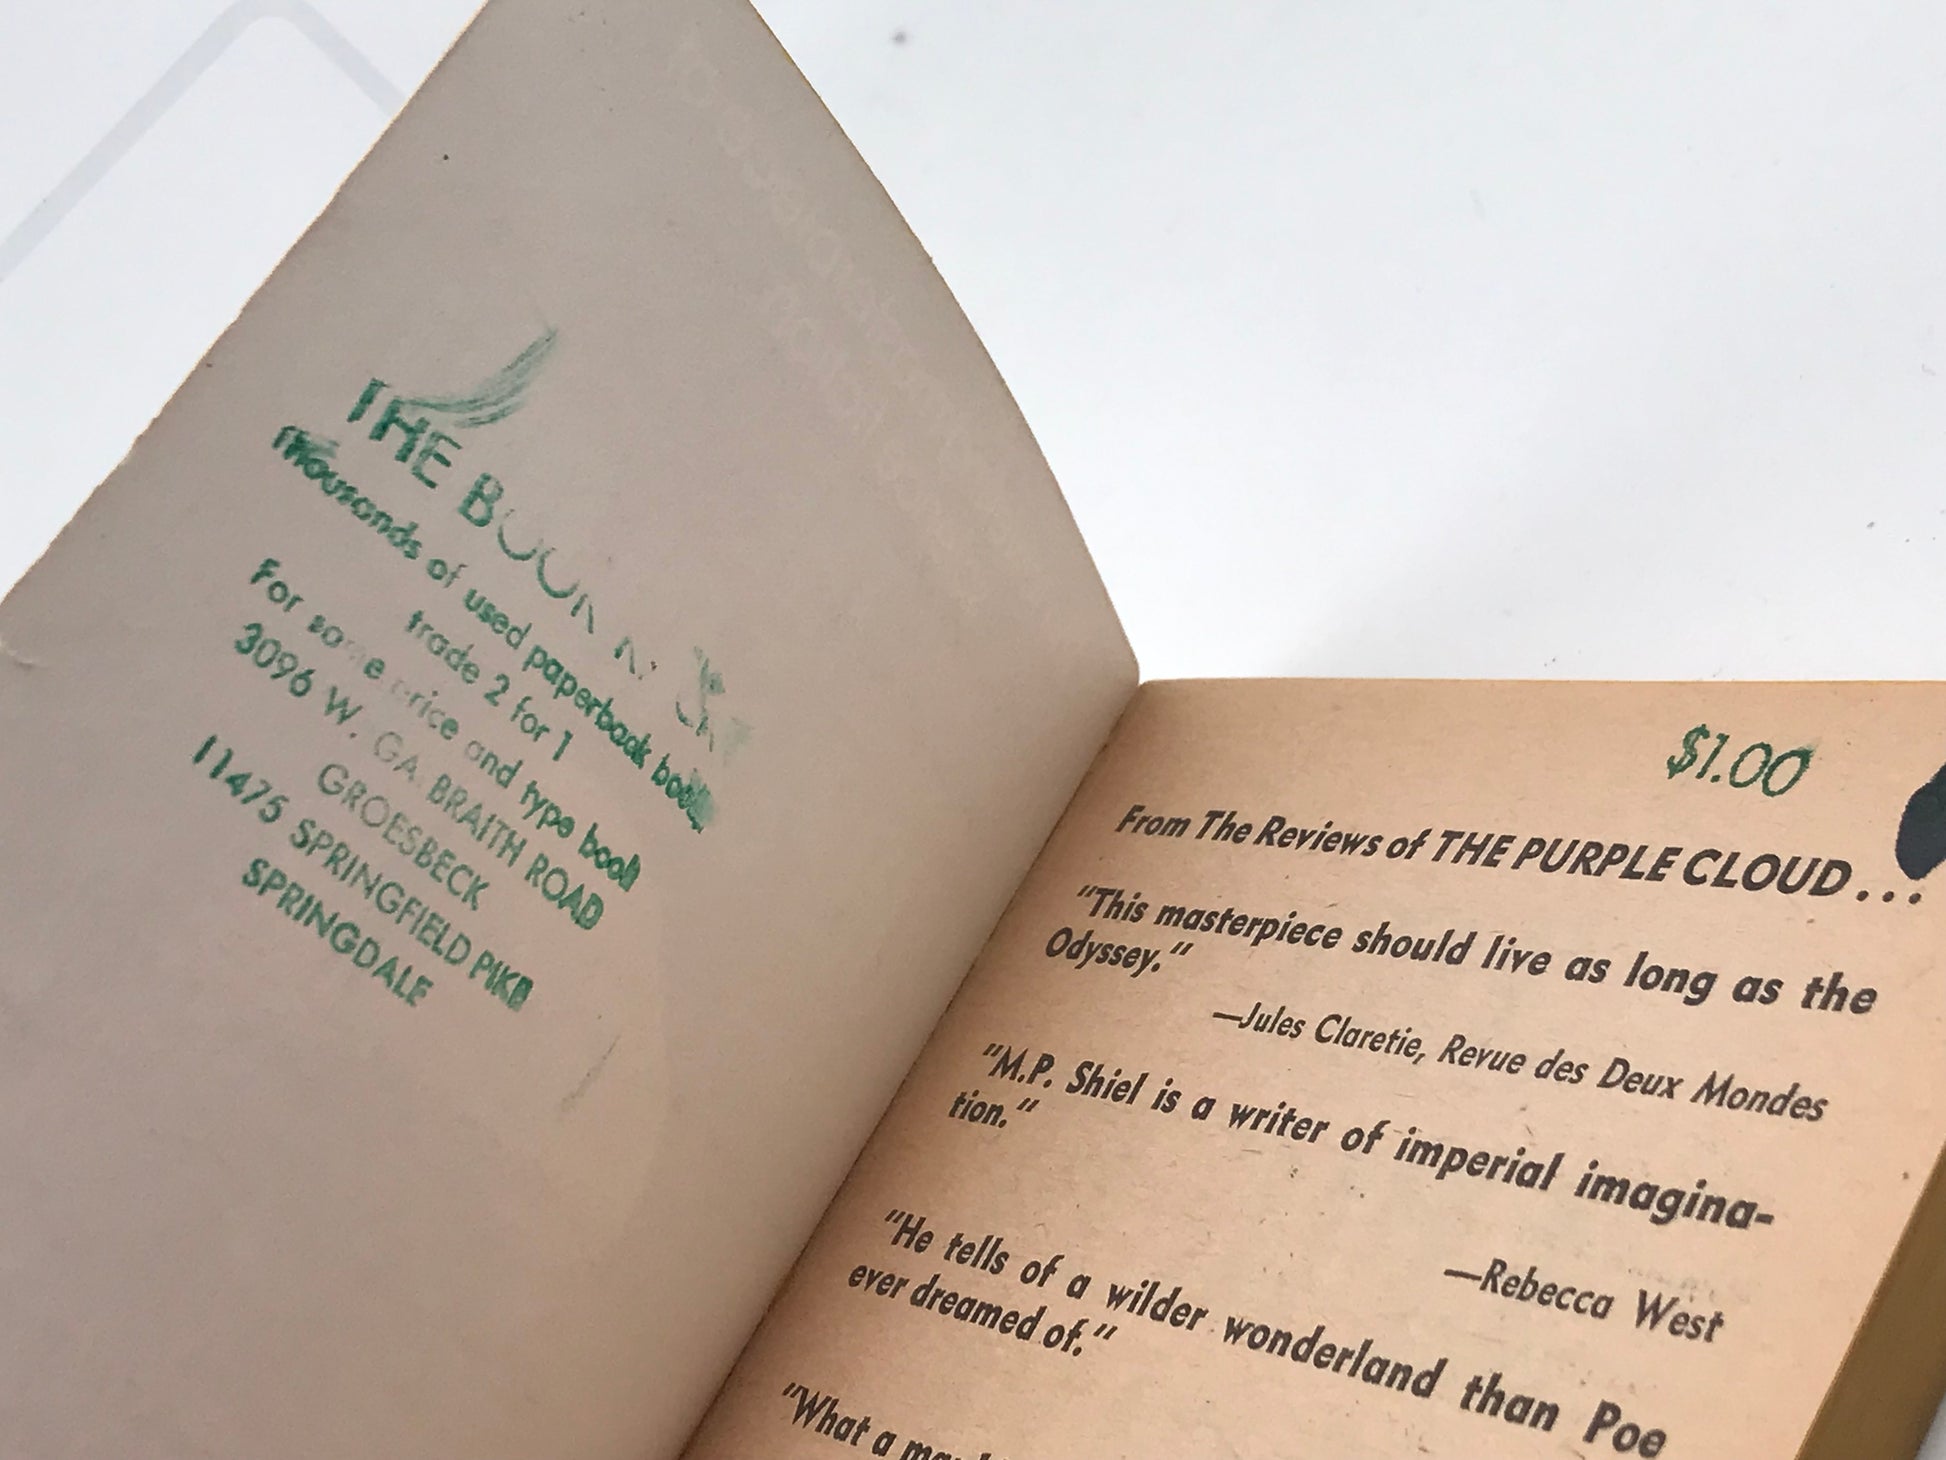 THE BOOK
Thousands of used paperback books
trade 2 for 1
For same price and type book
3096 W. GALBRAITH ROAD
GROESBECK
11475 SPRINGFIELD PIKE
SPRINGDALE
$1.00
From The Reviews of THE PURPLE CLOUD...
"This masterpiece should live as long as the
Odyssey."
—Jules Claretie, Revue des Deux Mondes
"M.P. Shiel is a writer of imperial imagina-
tion."
—Rebecca West
"He tells of a wilder wonderland than Poe
ever dreamed of."
"What a